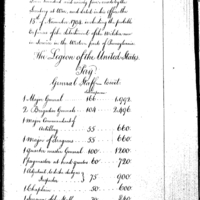 Secretary at War, and dated in his office the
15th of November 1794, including the probable
expense of the detachment of the Militia now
in Service in the Western parts of Pennsylvania
The Legion of the United States
Pay
General Staff
1 Major General 166 1,992.
2 Brigadier Generals 104 2.496.
1 Major Commandant of
Artillery 55 660.
1 Major of Dragoons 55 660.
1 Quarter master General 100 1200
1 paymaster at head quarters 60 720
1 Adjutant
Inspector 75 900
1 Chaplain 50 600
1 Surgeon 70 840